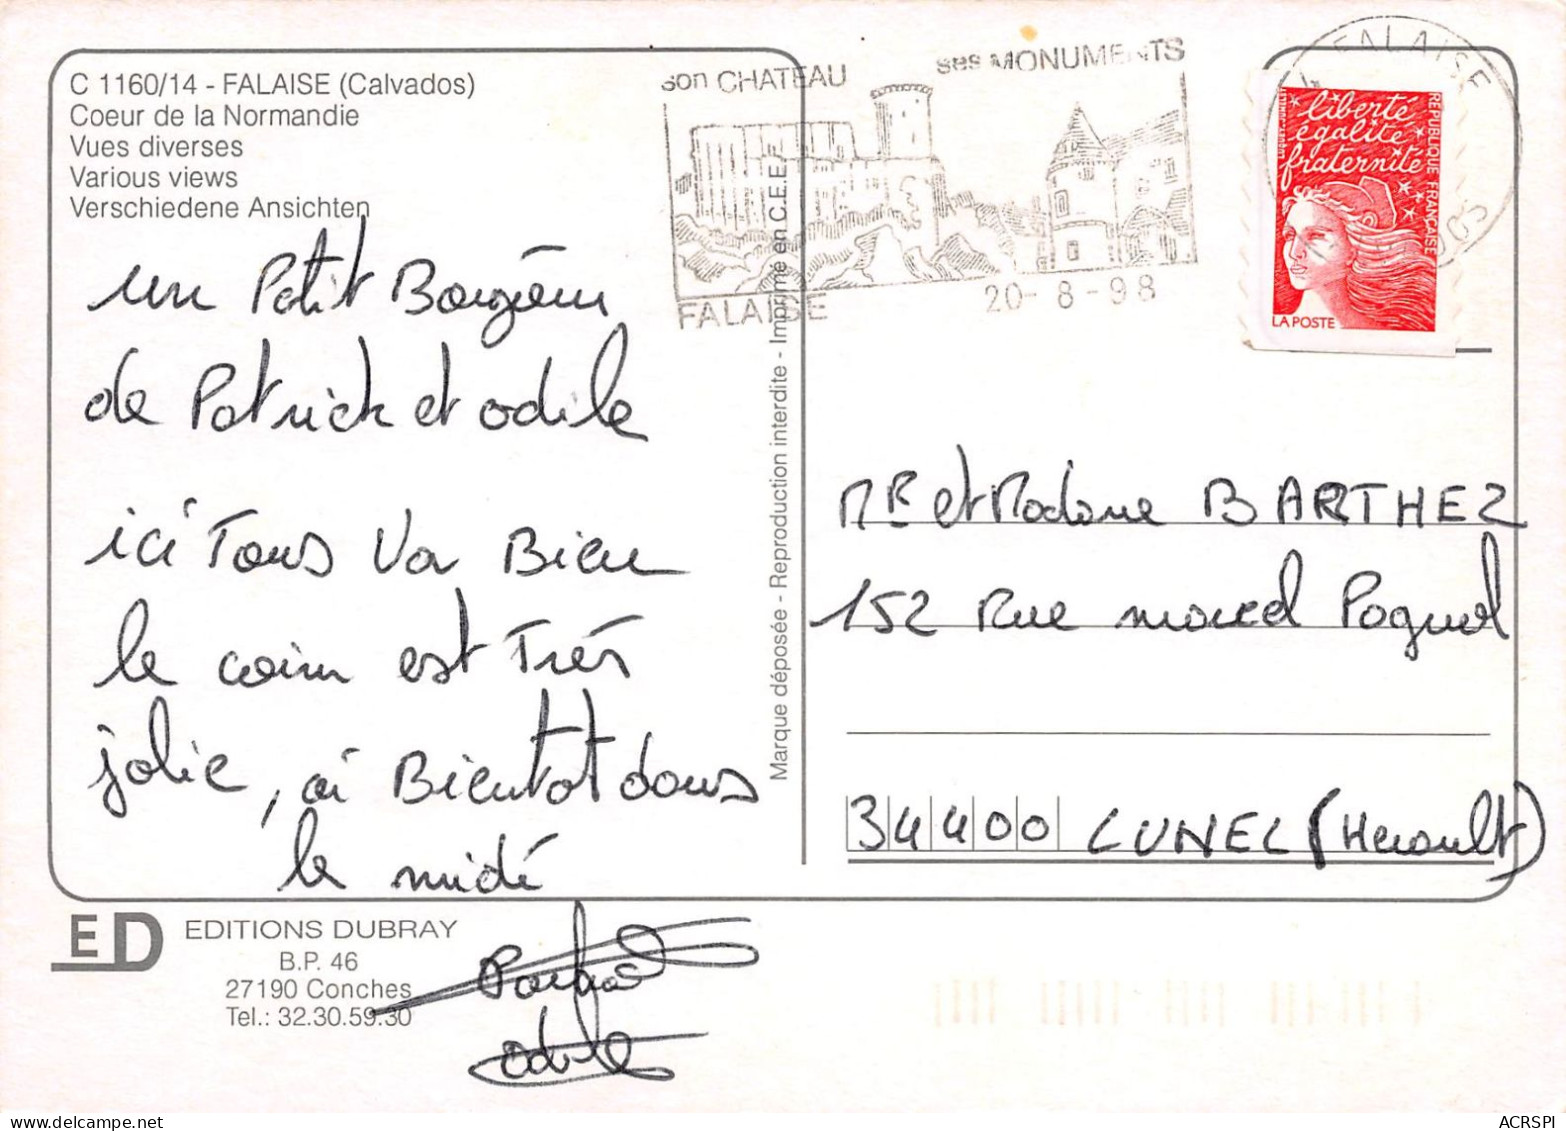 C 1160/14 - FALAISE (Calvados)
Coeur de la Normandie
Vues diverses
Various views
Verschiedene Ansichten
un Petit Bongéour
de Patrick et odile
ici Tous Va Bien
le coin est Très
jolie, ai Bientot dans
le midi
Patrick
odile
ED
EDITIONS DUBRAY
B.P. 46
27190 Conches
Tel.: 32.30.59.30
Marque déposée - Reproduction interdite - Imprimé en C.E.E.
son CHATEAU
ses MONUMENTS
FALAISE
20-8-98
FALAISE
liberté
égalité
fraternité
RÉPUBLIQUE FRANÇAISE
LA POSTE
Mr et Madame BARTHEZ
152 Rue marcel Pagnol
34400 LUNEL (Herault)
ACRSPI